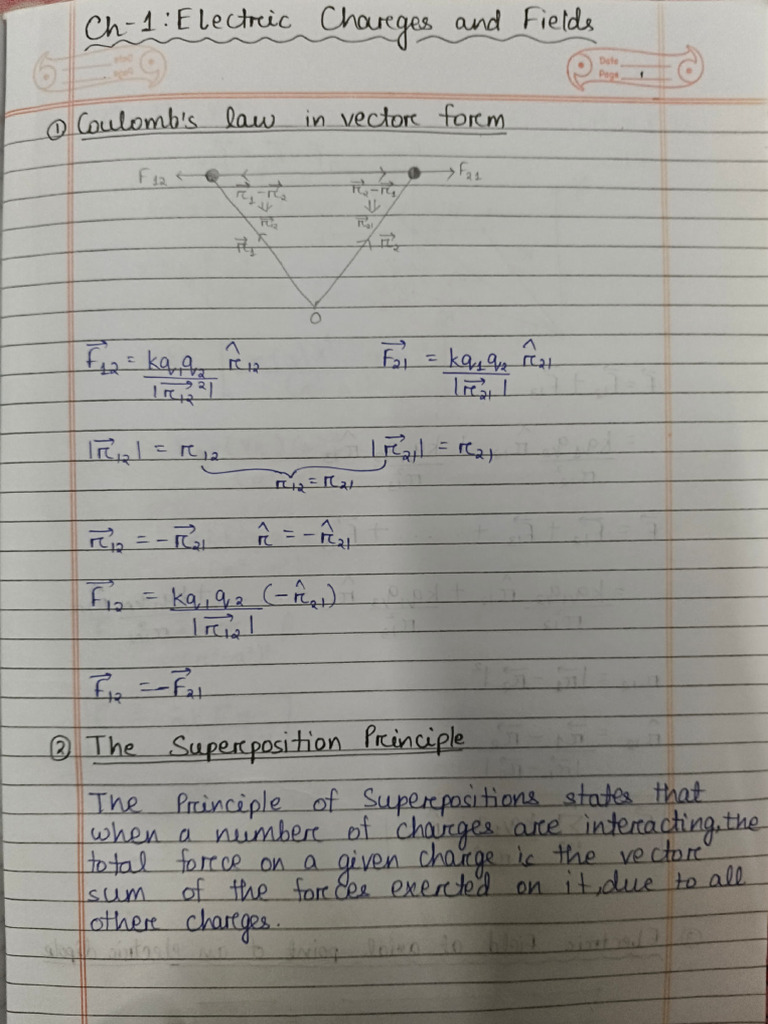 Ch-1: Electric Charges and Fields
Date
Page 1
① Coulomb's law in vector form
F₁₂ F₂₁
r⃗₁-r⃗₂ r⃗₂-r⃗₁
⇓ ⇓
r⃗₁₂ r⃗₂₁
r⃗₁ r⃗₂
O
F⃗₁₂ = kq₁q₂/|r⃗₁₂²| r̂₁₂ F⃗₂₁ = kq₁q₂/|r⃗₂₁| r̂₂₁
|r⃗₁₂| = r₁₂ |r⃗₂₁| = r₂₁
r₁₂ = r₂₁
r⃗₁₂ = -r⃗₂₁ r̂ = -r̂₂₁
F⃗₁₂ = kq₁q₂/|r⃗₁₂| (-r̂₂₁)
F⃗₁₂ = -F⃗₂₁
② The Superposition Principle
The Principle of Superpositions states that
when a number of charges are interacting, the
total force on a given charge is the vector
sum of the forces exerted on it, due to all
other charges.